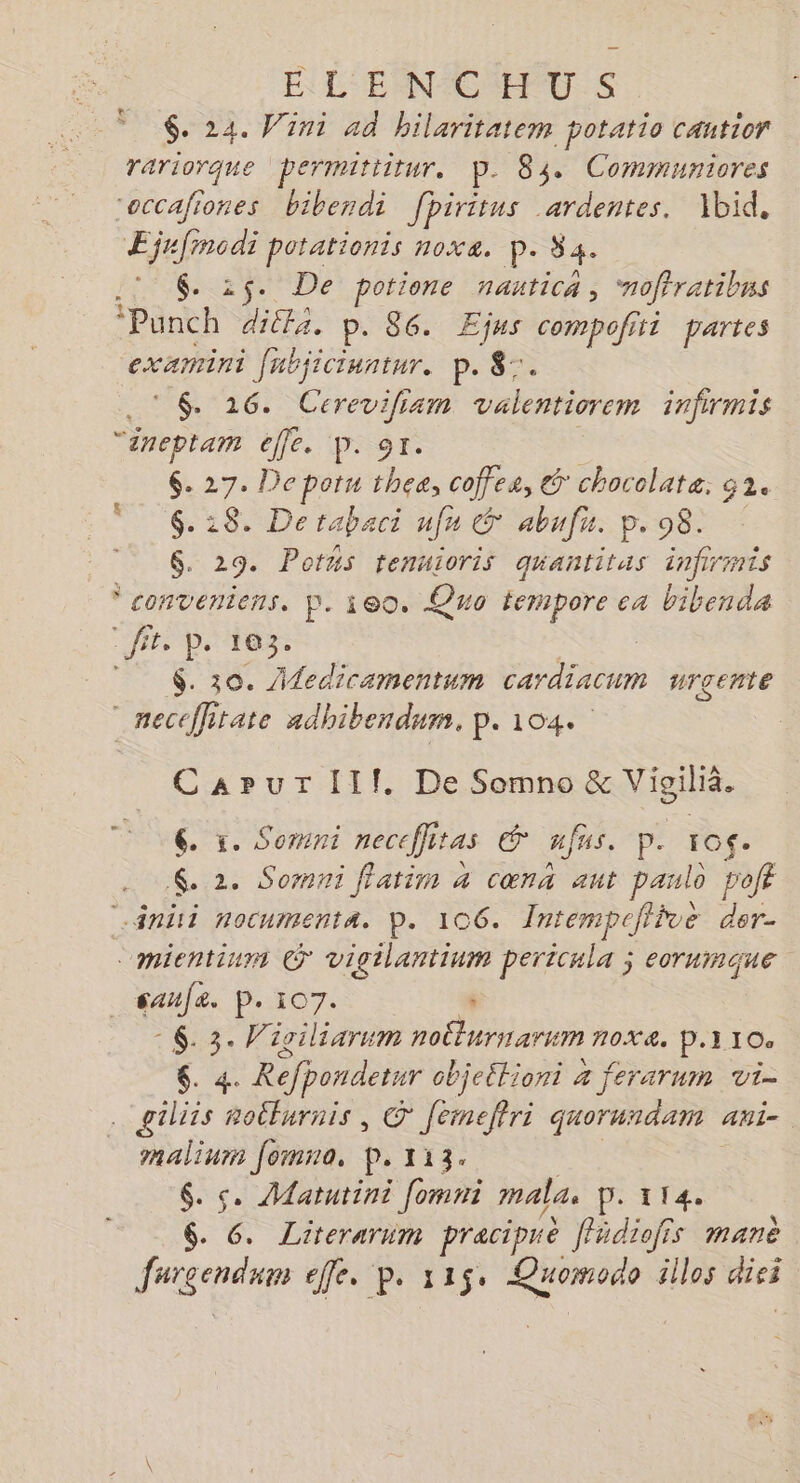 ELENCHUS
§. 24. Vini ad hilaritatem potatio cautior
rariorque permittitur. p. 83. Communiores
occaſiones bibendi ſpiritus ardentes. Ibid.
Ejuſmodi potationis noxæ. p. 84.
§. 25. De potione nauticâ, noſtratibus
Punch dictâ. p. 86. Ejus compoſiti partes
examini ſubjiciuntur. p. 87.
§. 26. Cereviſiam valentiorem infirmis
ineptam eſſe. p. 91.
§. 27. De potu theæ, coffeæ, & chocolatæ. 92.
§. 28. De tabaci uſu & abuſu. p. 98.
§. 29. Potûs tenuioris quantitas infirmis
conveniens. p. 100. Quo tempore ea bibenda
ſit. p. 103.
§. 30. Medicamentum cardiacum urgente
neceſſitate adhibendum. p. 104.
CAPUT III. De Somno & Vigiliâ.
§. 1. Somni neceſſitas & uſus. p. 105.
§. 2. Somni ſtatim à cœnâ aut paulò poſt
initi nocumenta. p. 106. Intempeſtivè dor-
mientium & vigilantium pericula ; eorumque
cauſæ. p. 107.
§. 3. Vigiliarum nocturnarum noxæ. p. 110.
§. 4. Reſpondetur objectioni à ferarum vi-
giliis nocturnis, & ſemeſtri quorundam ani-
malium ſomno. p. 113.
§. 5. Matutini ſomni mala. p. 114.
§. 6. Literarum præcipuè ſtudioſis manè
ſurgendum eſſe. p. 115. Quomodo illos diei